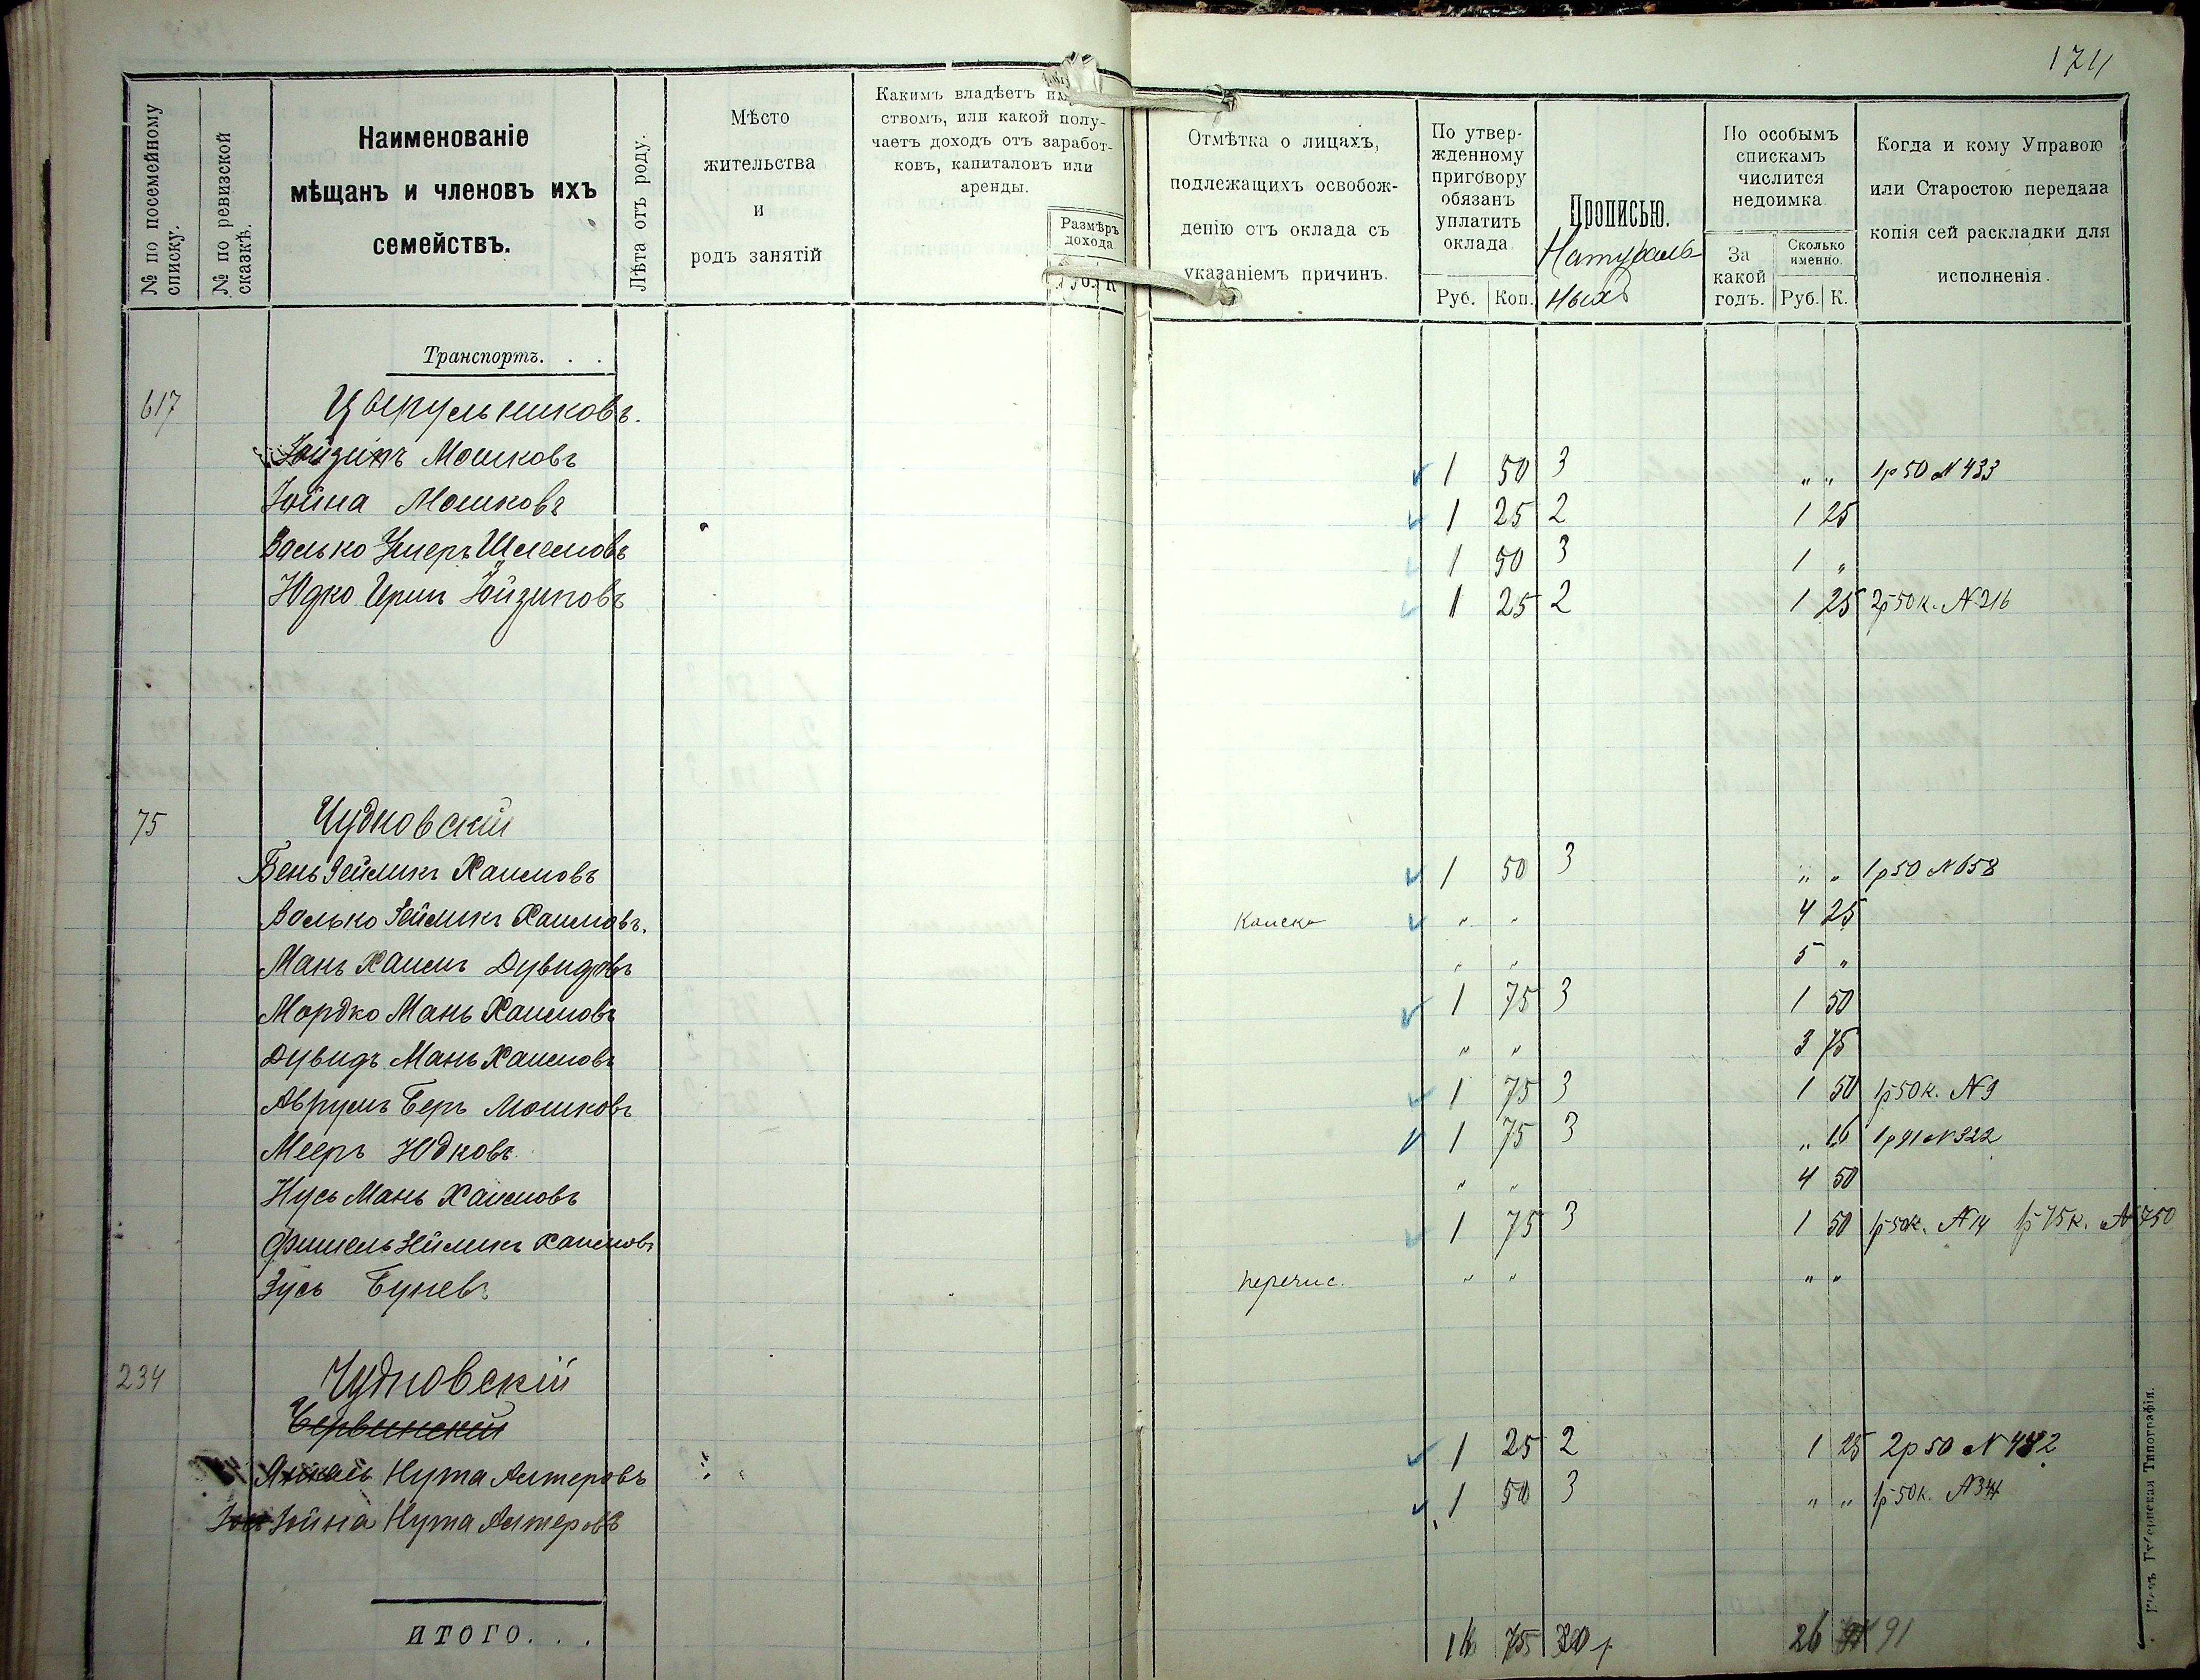 174
№ по посемейному списку.
№ по ревизской сказкѣ.
Наименованіе
мѣщанъ и членовъ ихъ
семействъ.
Лѣта отъ роду.
Мѣсто
жительства
и
родъ занятій
Какимъ владѣетъ
ствомъ, или какой полу-
чаетъ доходъ отъ заработ-
ковъ, капиталовъ или
аренды.
Размѣръ
дохода
Руб. К
Отмѣтка о лицахъ,
подлежащихъ освобож-
денію отъ оклада съ
указаніемъ причинъ.
По утвер-
жденному
приговору
обязанъ
уплатить
оклада
Руб. Коп.
Прописью.
Натураль
ныхъ
По особымъ
спискамъ
числится
недоимка
За
какой
годъ.
Сколько
именно.
Руб. К.
Когда и кому Управою
или Старостою передана
копія сей раскладки для
исполненія.
Транспортъ. . .
617 Цверульниковъ.
Іойзипъ Мошковъ 1 50 3 " " 1р 50 N 433
Іойна Мошковъ 1 25 2 1 25
Волько Умеръ Шлемовъ 1 50 3 1 "
Юдко Ершъ Іойзиповъ 1 25 2 1 25 2р 50 к. N 216
75 Чудновскій
Бень Зейликъ Хаимовъ 1 50 3 " " 1р 50 N 658
Волько Зейликъ Хаимовъ. " " 4 25
Мань Хаимъ Дувидовъ " " 5 "
Мордко Мань Хаимовъ 1 75 3 1 50
Дувидъ Мань Хаимовъ " " 3 75
Аврумъ Беръ Мошковъ 1 75 3 1 50 1р 50 к. N 9
Мееръ Юдковъ 1 75 3 " 16 1р 91 N 322
Нусь Мань Хаимовъ " " 4 50
Фишель Зейликъ Хаимовъ 1 75 3 1 50 1р 50к. N 14 1р 75 к. N 750
Зусь Буневъ перечис. " " " "
234 Чудновскій
Червинскій
Нута Алтеровъ 1 25 2 1 25 2р 50 N 482
Іойна Нута Алтеровъ 1 50 3 " " 1р 50 к. N 344
ИТОГО. . . 16 75 26 91
Губернская Типографія.